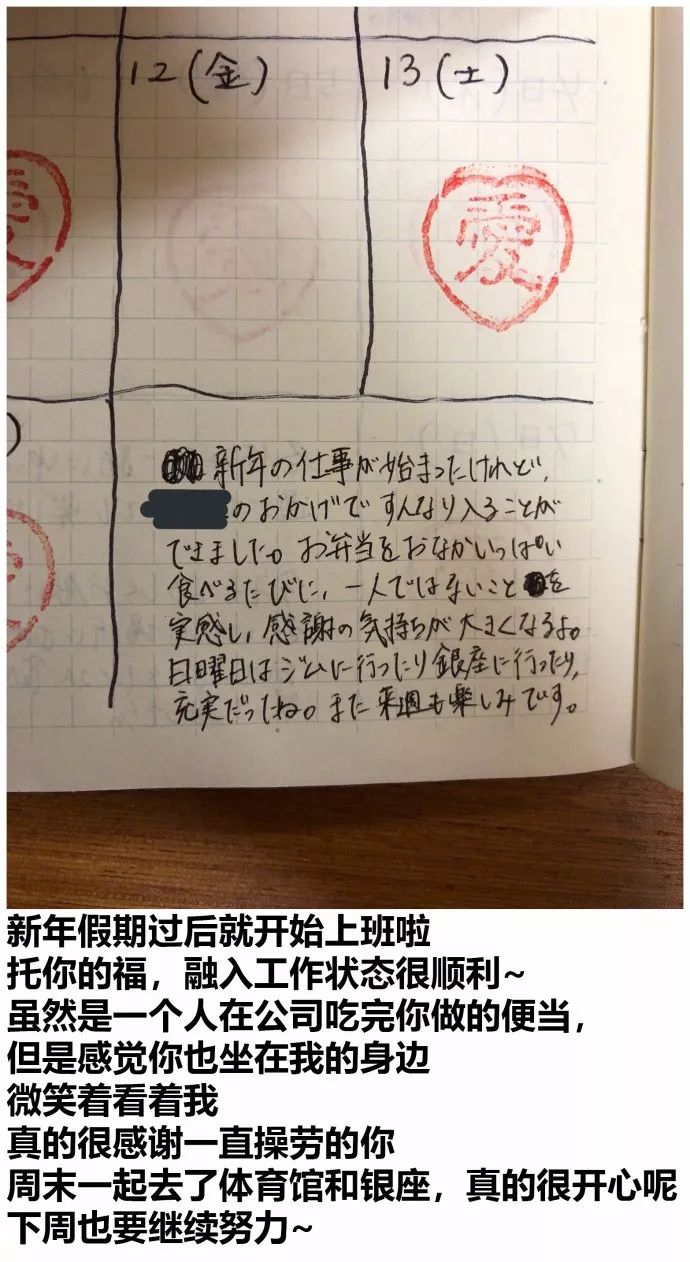 12(金)
13(土)
愛
新年の仕事が始まったけれど、
のおかげで すんなり入ることが
できました。お弁当をおなかいっぱい
食べるたびに、一人ではないことを
実感し、感謝の気持ちが大きくなるよ。
日曜日はジムに行ったり銀座に行ったり、
充実だったね。また来週も楽しみです。
新年假期过后就开始上班啦
托你的福，融入工作状态很顺利~
虽然是一个人在公司吃完你做的便当，
但是感觉你也坐在我的身边
微笑着看着我
真的很感谢一直操劳的你
周末一起去了体育馆和银座，真的很开心呢
下周也要继续努力~